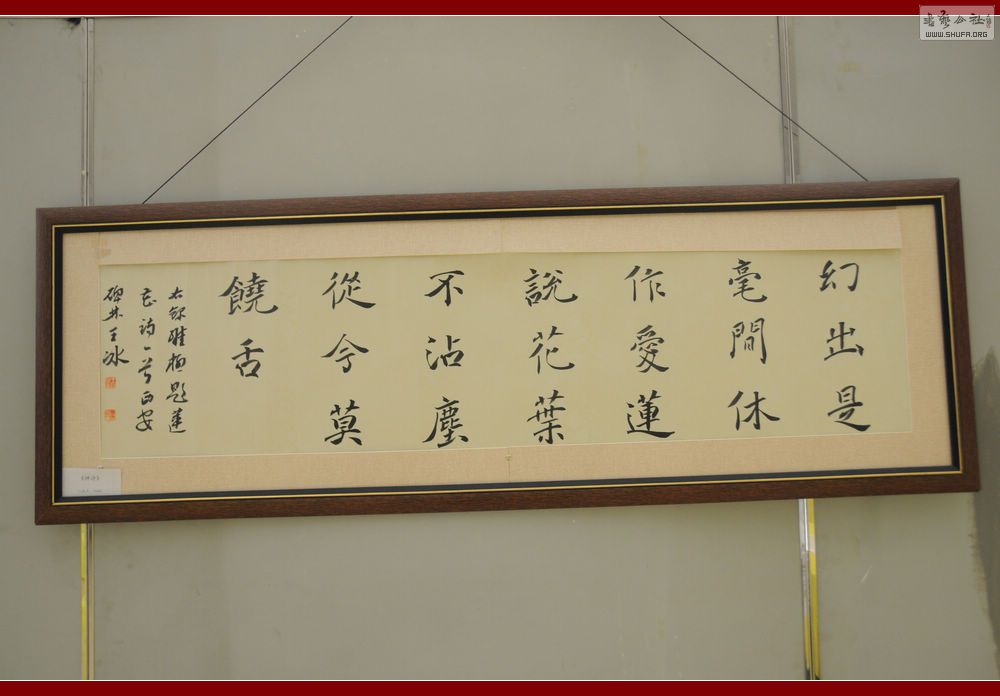 幻出是
毫間休
作愛蓮
說花葉
不沾塵
從今莫
饒舌
右錄雅柏題蓮
花詩一首西安
碑林王冰
書艺公社
WWW.SHUFA.ORG